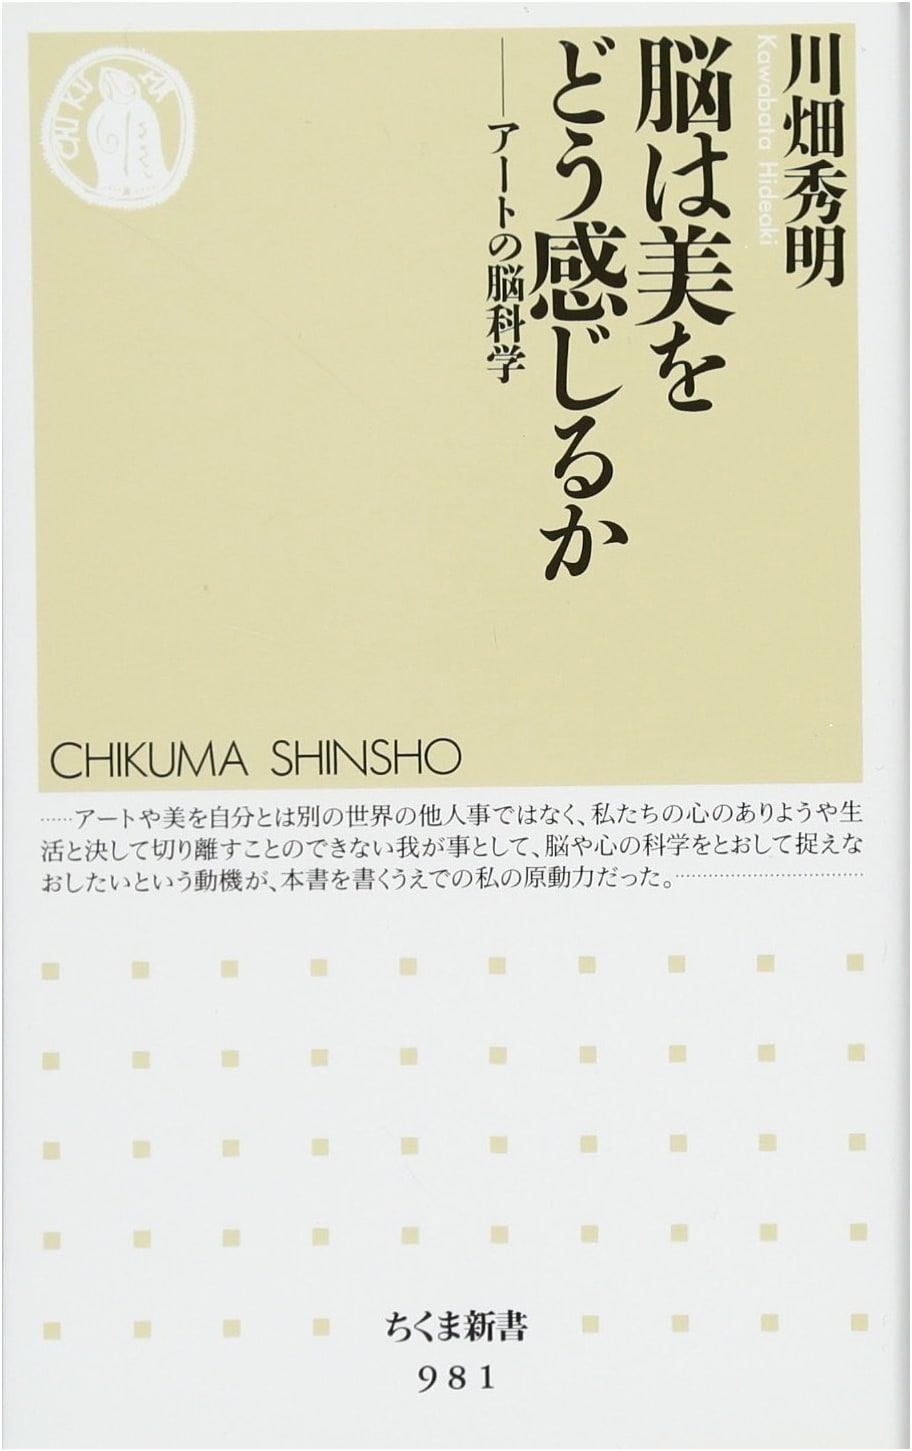 川畑秀明
Kawabata Hideaki
脳は美を
どう感じるか
──アートの脳科学
CHIKUMA
CHIKUMA SHINSHO
……アートや美を自分とは別の世界の他人事ではなく、私たちの心のありようや生
活と決して切り離すことのできない我が事として、脳や心の科学をとおして捉えな
おしたいという動機が、本書を書くうえでの私の原動力だった。…………………………
ちくま新書
981